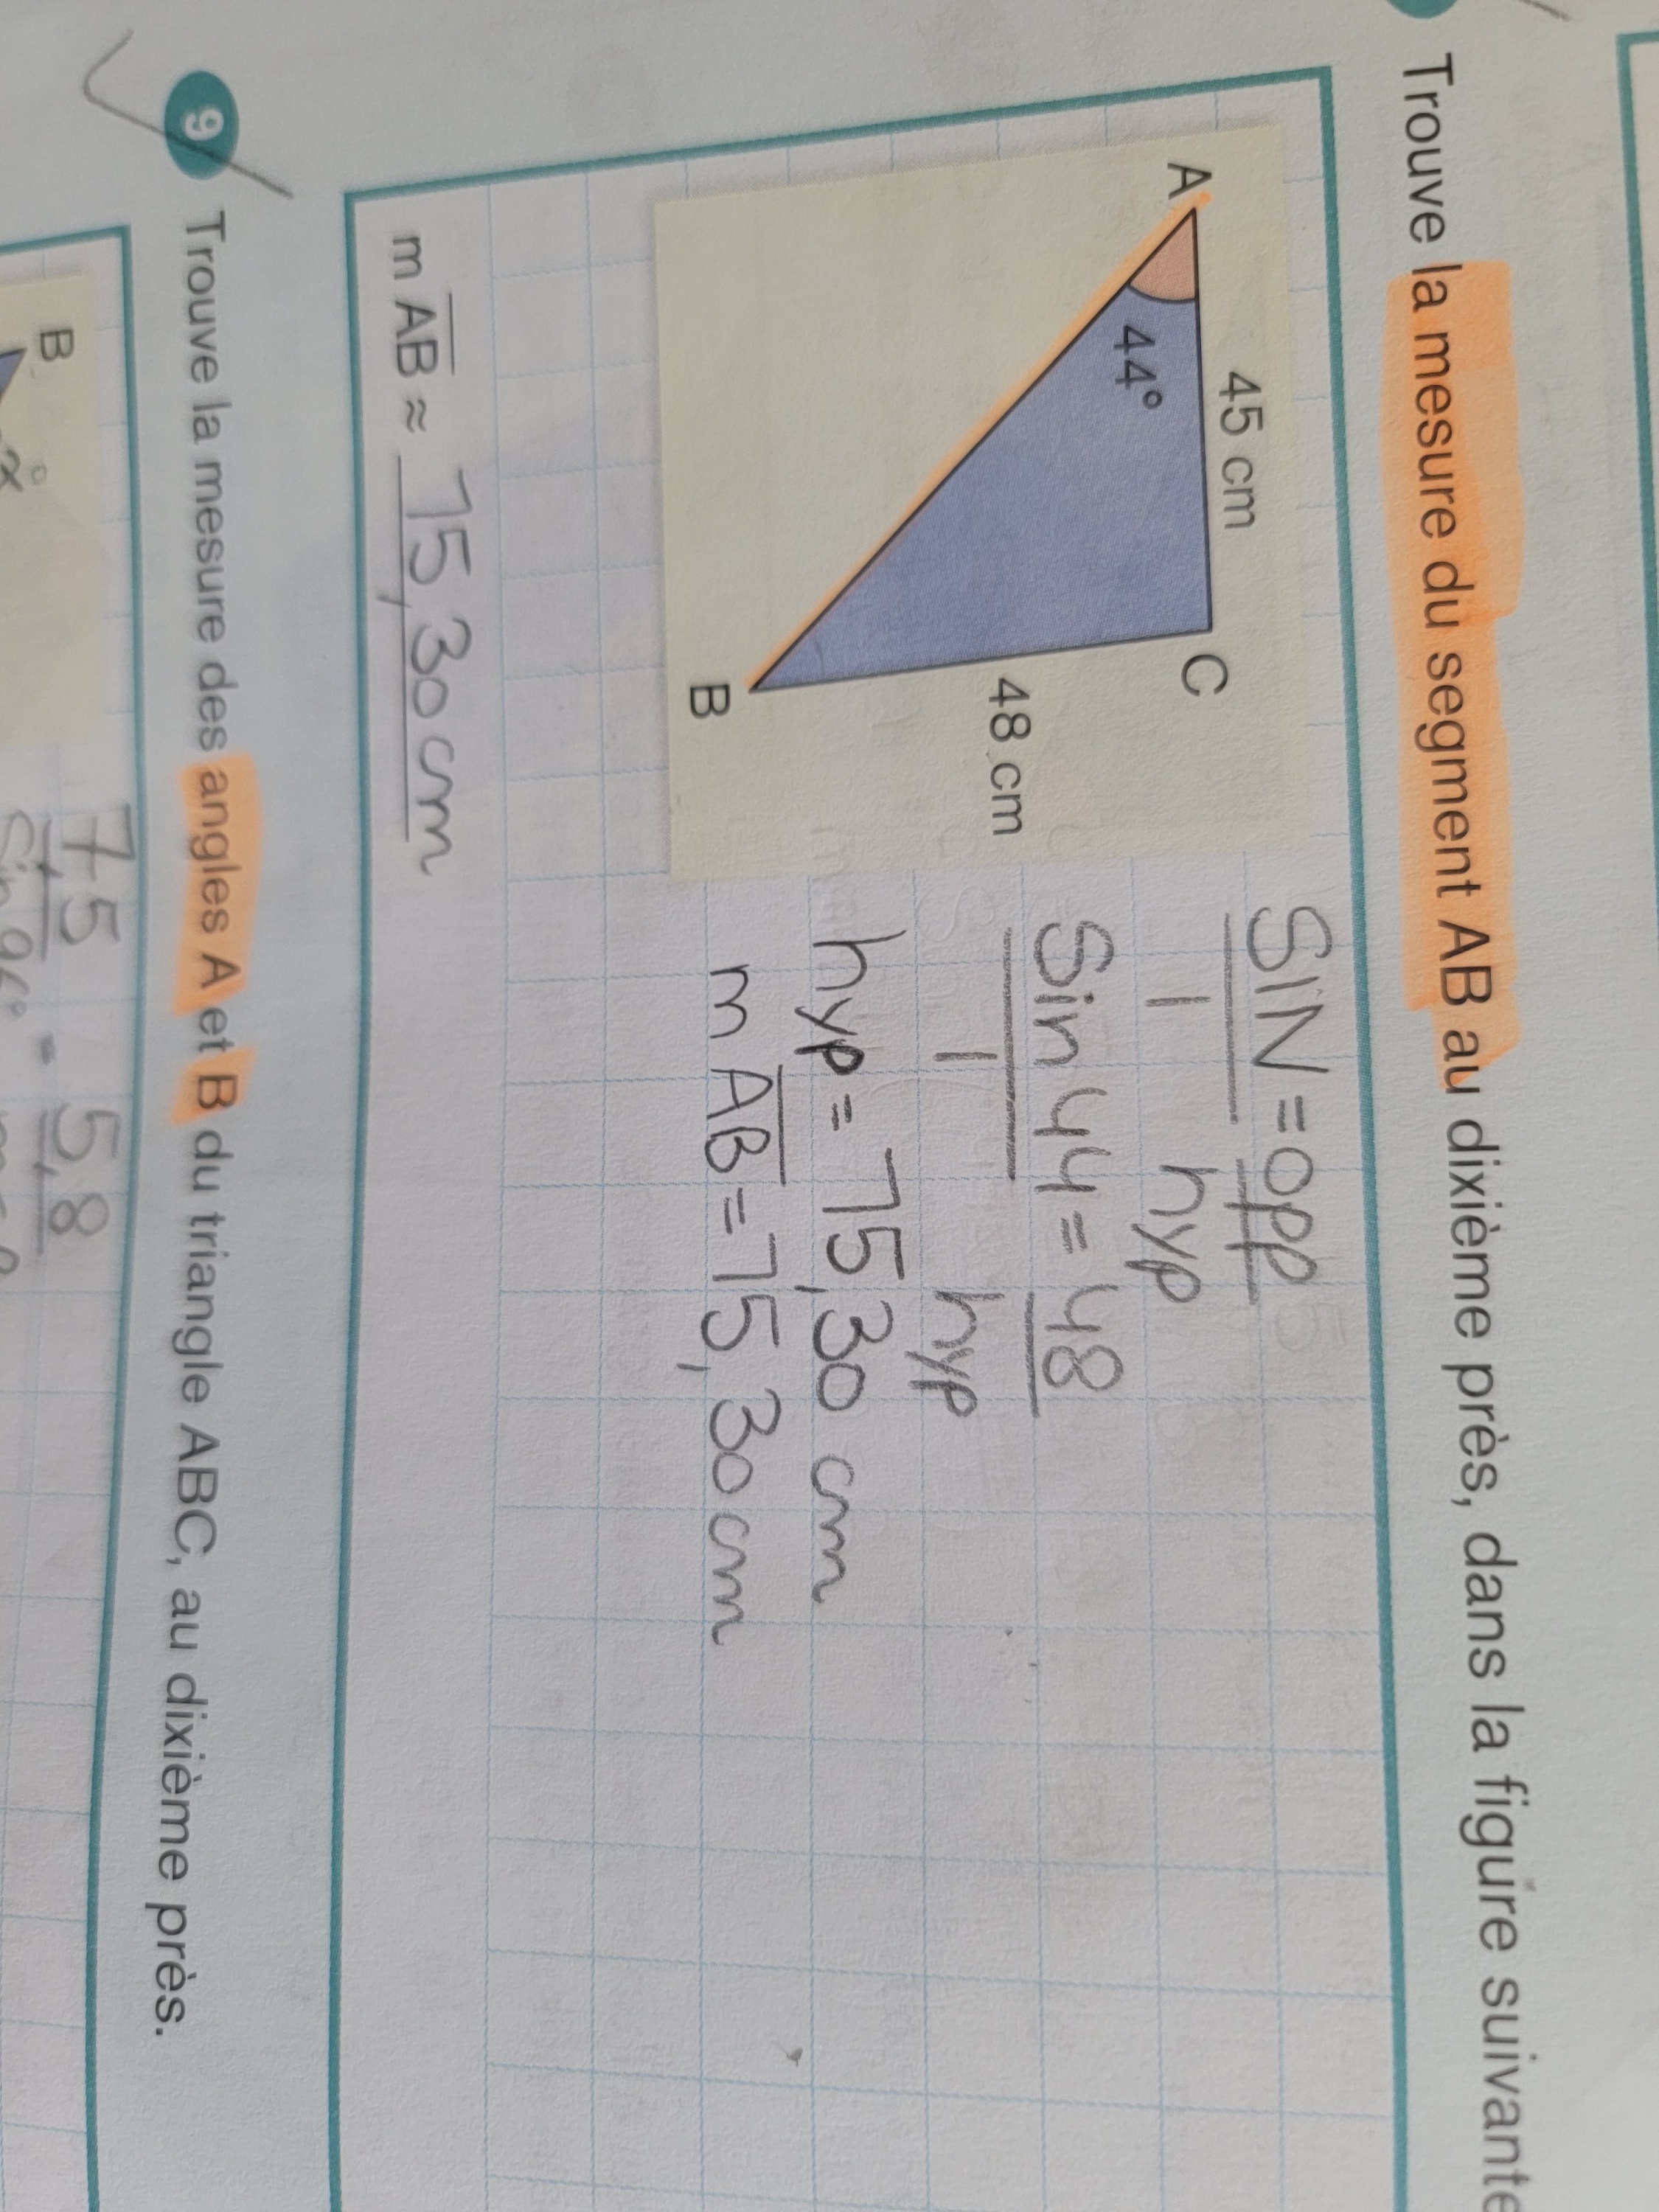 Trouve la mesure du segment AB au dixième près, dans la figure suivante
A
45 cm
C
44°
48 cm
B
SIN = opp
1 hyp
Sin 44 = 48
1 hyp
hyp = 75,30 cm
m AB = 75,30 cm
m AB ≈ 75,30 cm
9 Trouve la mesure des angles A et B du triangle ABC, au dixième près.
B
x°
7,5 = 5,8